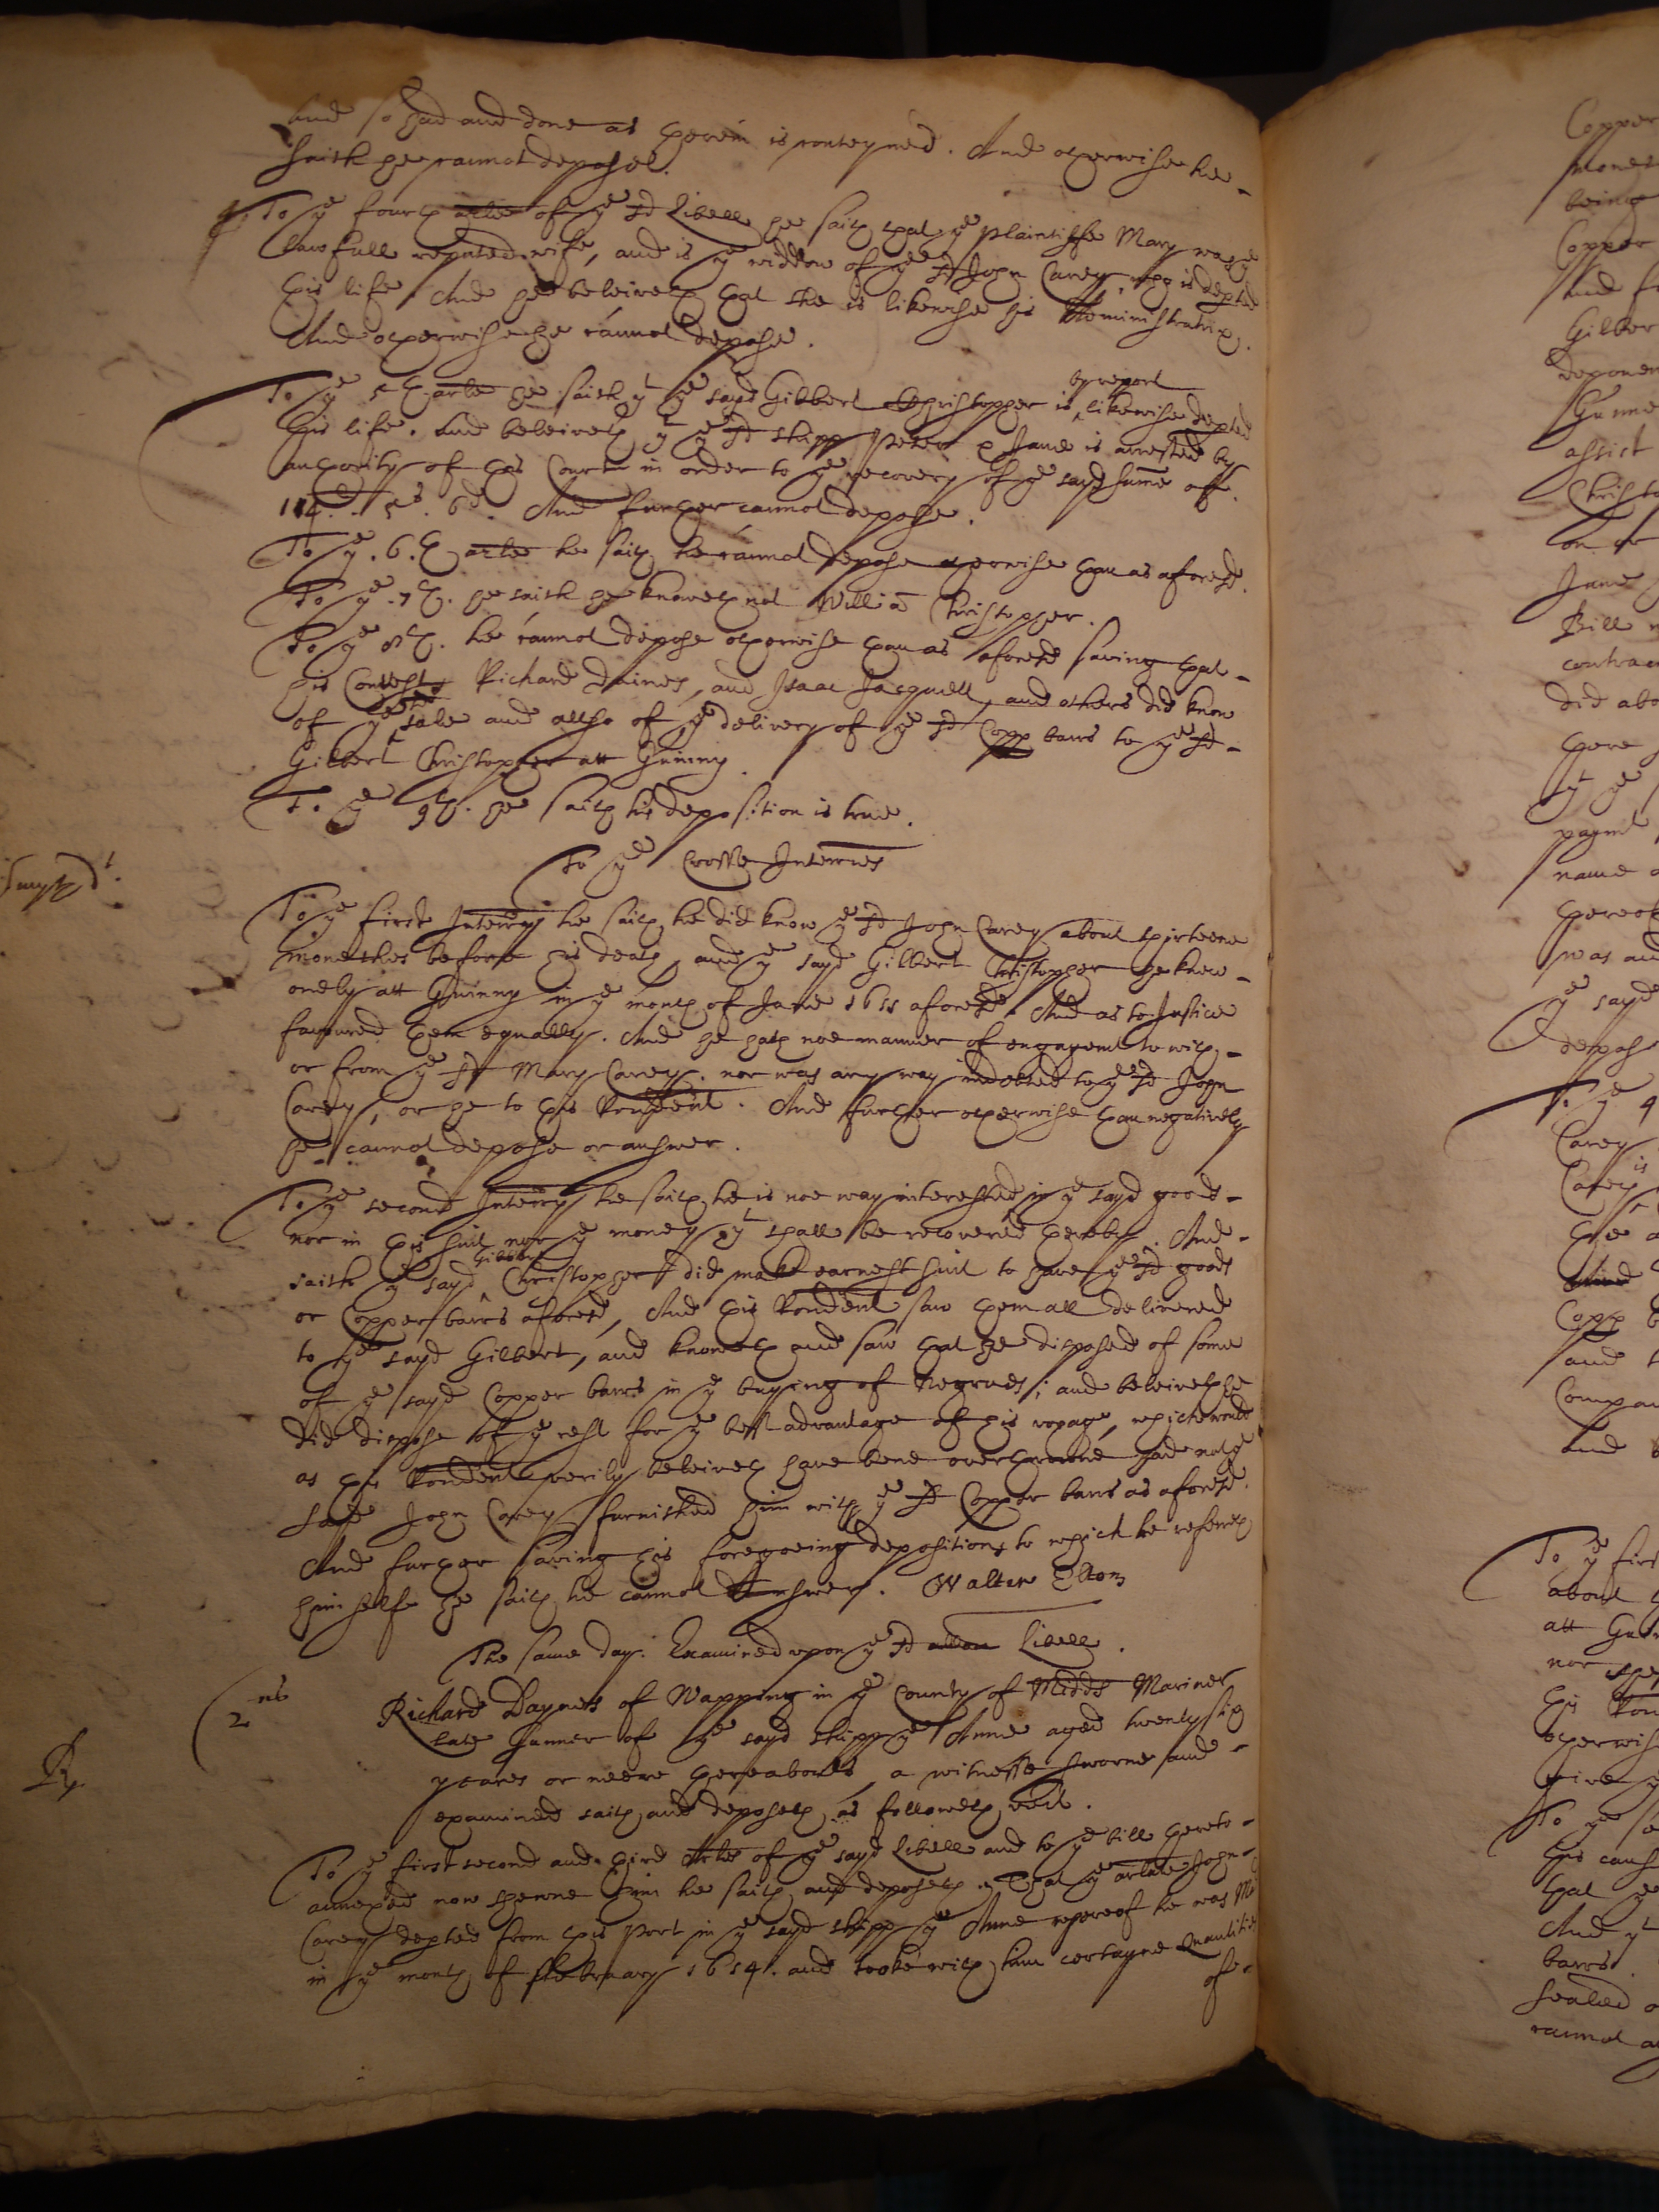 and so had and done as therein is conteyned. And otherwise hee
saith hee cannot depose.
To ye fourth arlē of ye sd Libell hee saith that ye plaintiffe Mary was ye
lawfull reputed wife, and is ye widdow of ye sd John Carey, who is depted
this life. And hee beleiveth that she is likewise his Administratrix.
And otherwise hee cannot depose.
To ye 5th arlē he saith yt ye sayd Gilbert Christopher is by report likewise depted
this life. And beleiveth yt ye sd shipp Peter & Jane is arrested by
authority of this Court in order to ye recovery of ye sayd summe off
114li. 5s. 6d. And further cannot depose.
To ye .6.th arlē he saith he cannot depose otherwise than as aforesd.
To ye .7th. he saith he knoweth not William Christopher.
To ye 8th. he cannot depose otherwise than as aforesd saving that
his Contests Richard Daines, and Isaac Jacquell, and others did know
of ye sd sale and allso of ye delivery of ye sd Copp barrs to ye sd
Gilbert Christopher att Guinny.
To ye 9th. hee saith his deposition is true.
To ye Crosse Interries
To ye first Interry he saith he did know ye sd John Carey about thirteene
monethes before his death, and ye sayd Gilbert Christopher he knew
onely att Guinny in ye month of June 1655 aforesd. And as to Justice
favoured them equally. And he hath noe manner of engagemt to with
or from ye sd Mary Carey. nor was any way indebted to ye sd John
Carey, or he to this Rendent. And further otherwise than negatively
he cannot depose or answer.
To ye second Interry he saith he is noe way interested in ye sayd goods
nor in this suit nor ye money yt shall be recovered thereby. And
saith ye sayd Gilbert Christopher did make earnest suit to have ye sd goods
or Copper barrs aforesd, And this Rendent saw them all delivered
to ye sayd Gilbert, and knoweth and saw that he disposed of some
of ye sayd Copper barrs in ye buying of Negroes; and beleiveth he
did dispose of ye rest for ye best advantage of his voyage, which would
as this Rendent verily beleiveth have bene overthrowne had not ye
sayd John Carey furnished him with ye sd Copper barrs as aforesd.
And further saving his foregoeing depositions to which he referreth
himselfe he saith he cannot Answer. Walter Elton
The same day. Examined upon ye sd allōn Libell.
2us
Richard Daynes of Wapping in ye County of Midds Mariner
late Gunner of ye sayd shipp ye Anne aged twenty six
yeares or neere thereabouts, a witnesse sworne and
examined saith and deposeth as followeth vizt.
To ye first second and third Arles of ye sayd Libell and to ye bill hereto
annexed now shewne him he saith and deposeth, That ye arlate John
Carey depted from this Port in ye sayd shipp ye Anne whereof he was Mr
in ye month of ffebruary 1654. and tooke with him certayne Quantities
of